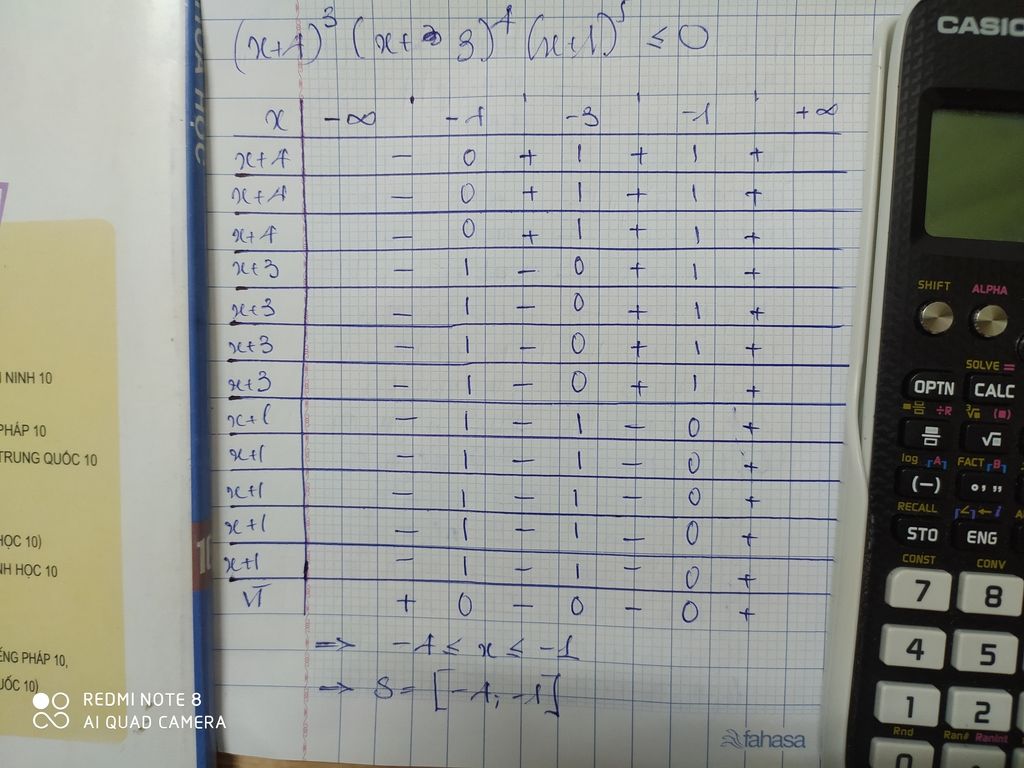 (x+4)³ (x+3)⁴ (x+1)⁵ ≤ 0
x -∞ -4 -3 -1 +∞
x+4 - 0 + | + | +
x+4 - 0 + | + | +
x+4 - 0 + | + | +
x+3 - | - 0 + | +
x+3 - | - 0 + | +
x+3 - | - 0 + | +
x+3 - | - 0 + | +
x+1 - | - | - 0 +
x+1 - | - | - 0 +
x+1 - | - | - 0 +
x+1 - | - | - 0 +
x+1 - | - | - 0 +
VT + 0 - 0 - 0 +
=> -4 ≤ x ≤ -1
=> S = [-4; -1]
fahasa
HỌC
10
NINH 10
PHÁP 10
TRUNG QUỐC 10
HỌC 10)
NH HỌC 10
ẾNG PHÁP 10,
UỐC 10)
REDMI NOTE 8
AI QUAD CAMERA
CASIO
SHIFT ALPHA
SOLVE =
OPTN CALC
÷R
log [A] FACT [B]
(-) ° ’ ”
RECALL ∠ ← i
STO ENG
CONST CONV
7 8
4 5
1 2
Rnd Ran# RanInt
0